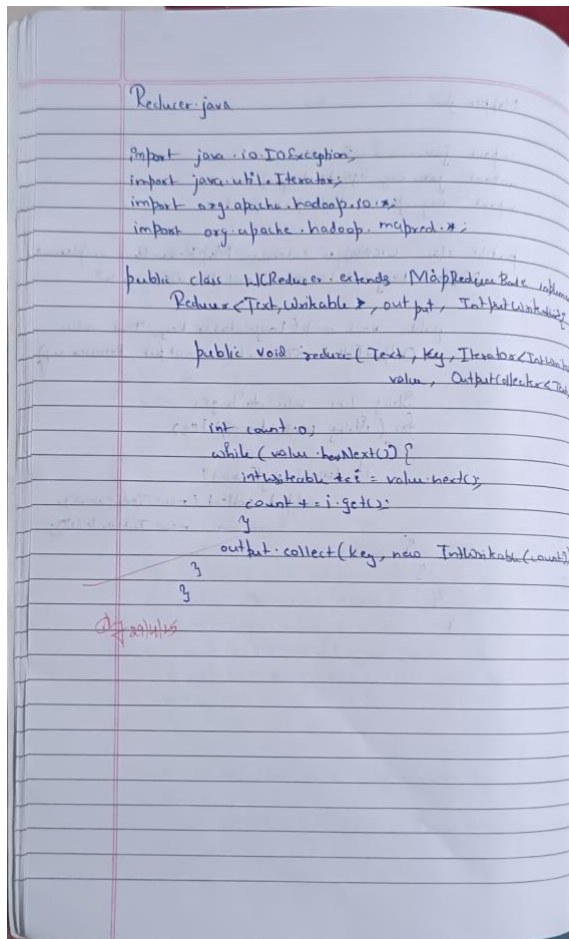 Reducer.java
import java.io.IOException;
import java.util.Iterator;
import org.apache.hadoop.io.*;
import org.apache.hadoop.mapred.*;
public class WCReducer extends MapReduceBase
Reducer<Text, Writable >, output,
public void reduce(Text, Key, Iterator<
value, OutputCollector<
int count.0;
while (value.hasNext()) {
intWriteable i = value.next();
count + = i.get();
}
output.collect(key, new IntWritable(count)
}
}
29/4/25